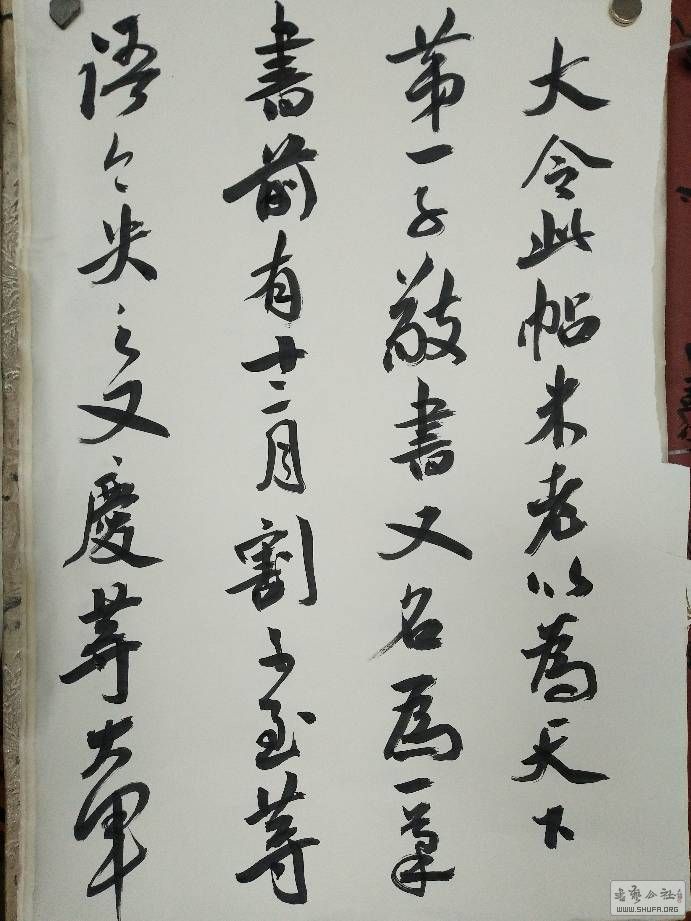 大令此帖米老以為天下
第一子敬書又名為一筆
書前有十二月割子至等
語今失之又慶等大軍
書藝公社
WWW.SHUFA.ORG